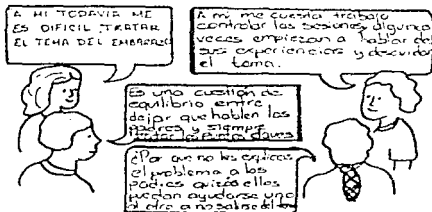 A MI TODAVIA ME
ES DIFICIL TRATAR
EL TEMA DEL EMBARAZO
A mi me cuesta trabajo
controlar las sesiones, algunas
veces empiezan a hablar de
sus experiencias y descuidan
el tema.
Es una cuestión de
equilibrio entre
dejar que hablen los
padres y siempre
puntos claves
¿Por qué no les explicas
el problema a los
padres quizás ellos
puedan ayudarse uno
al otro a no salirse del tema